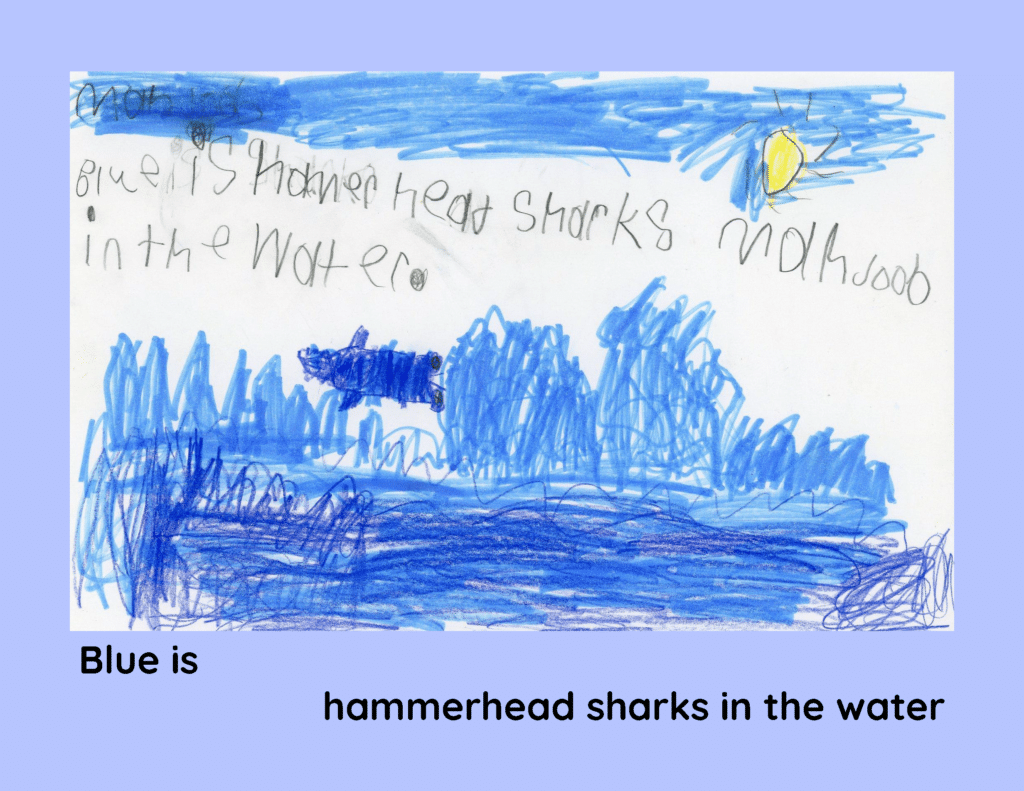 Blue is Hamer head Sharks Mahjoob
in the Water.
Blue is
hammerhead sharks in the water